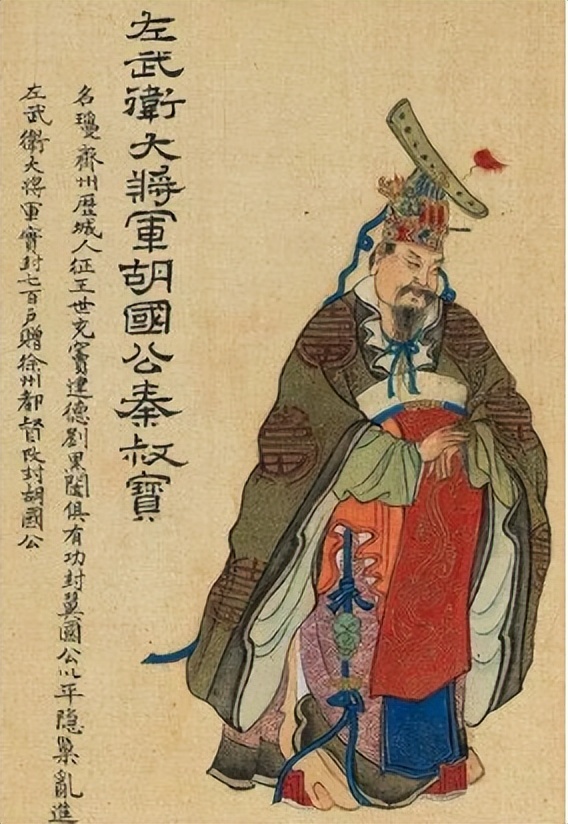 左武衛大將軍胡國公秦叔寶
名瓊齊州歷城人征王世充竇建德劉黑闥俱有功封翼國公以平隐巢亂進
左武衛大將軍實封七百戶贈徐州都督改封胡國公